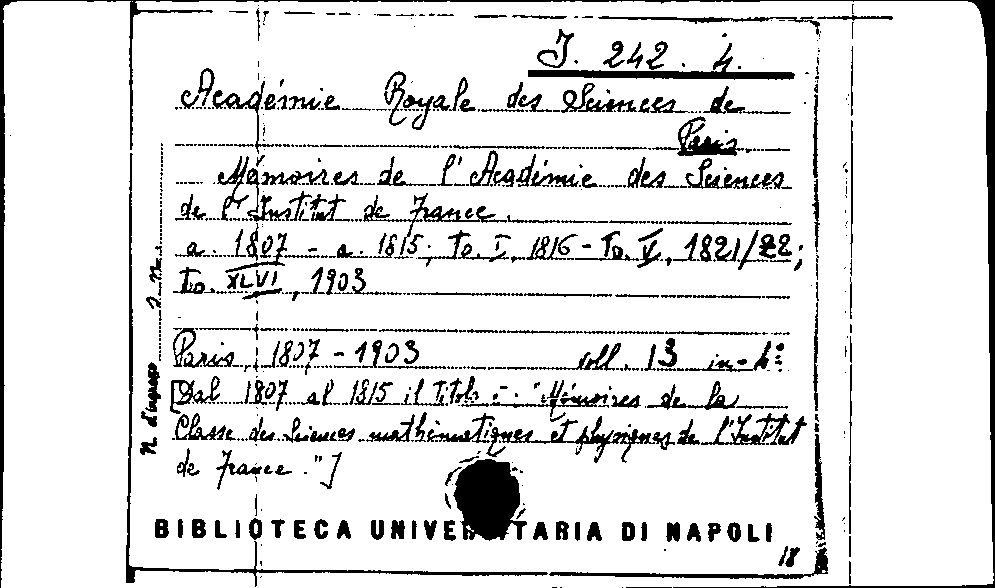 J. 242. 4.
Académie Royale des Sciences de
Paris.
Mémoires de l'Académie des Sciences
de l'Institut de France.
a. 1807 - a. 1815; To. I, 1816 - To. V, 1821/22;
To. XLVI, 1903
Paris, 1807 - 1903 voll. 13 in-4º
[Dal 1807 al 1815 il titolo è: "Mémoires de la
Classe des Sciences mathématiques et physiques de l'Institut
de France."]
N. d'ingresso
BIBLIOTECA UNIVERSITARIA DI NAPOLI
18